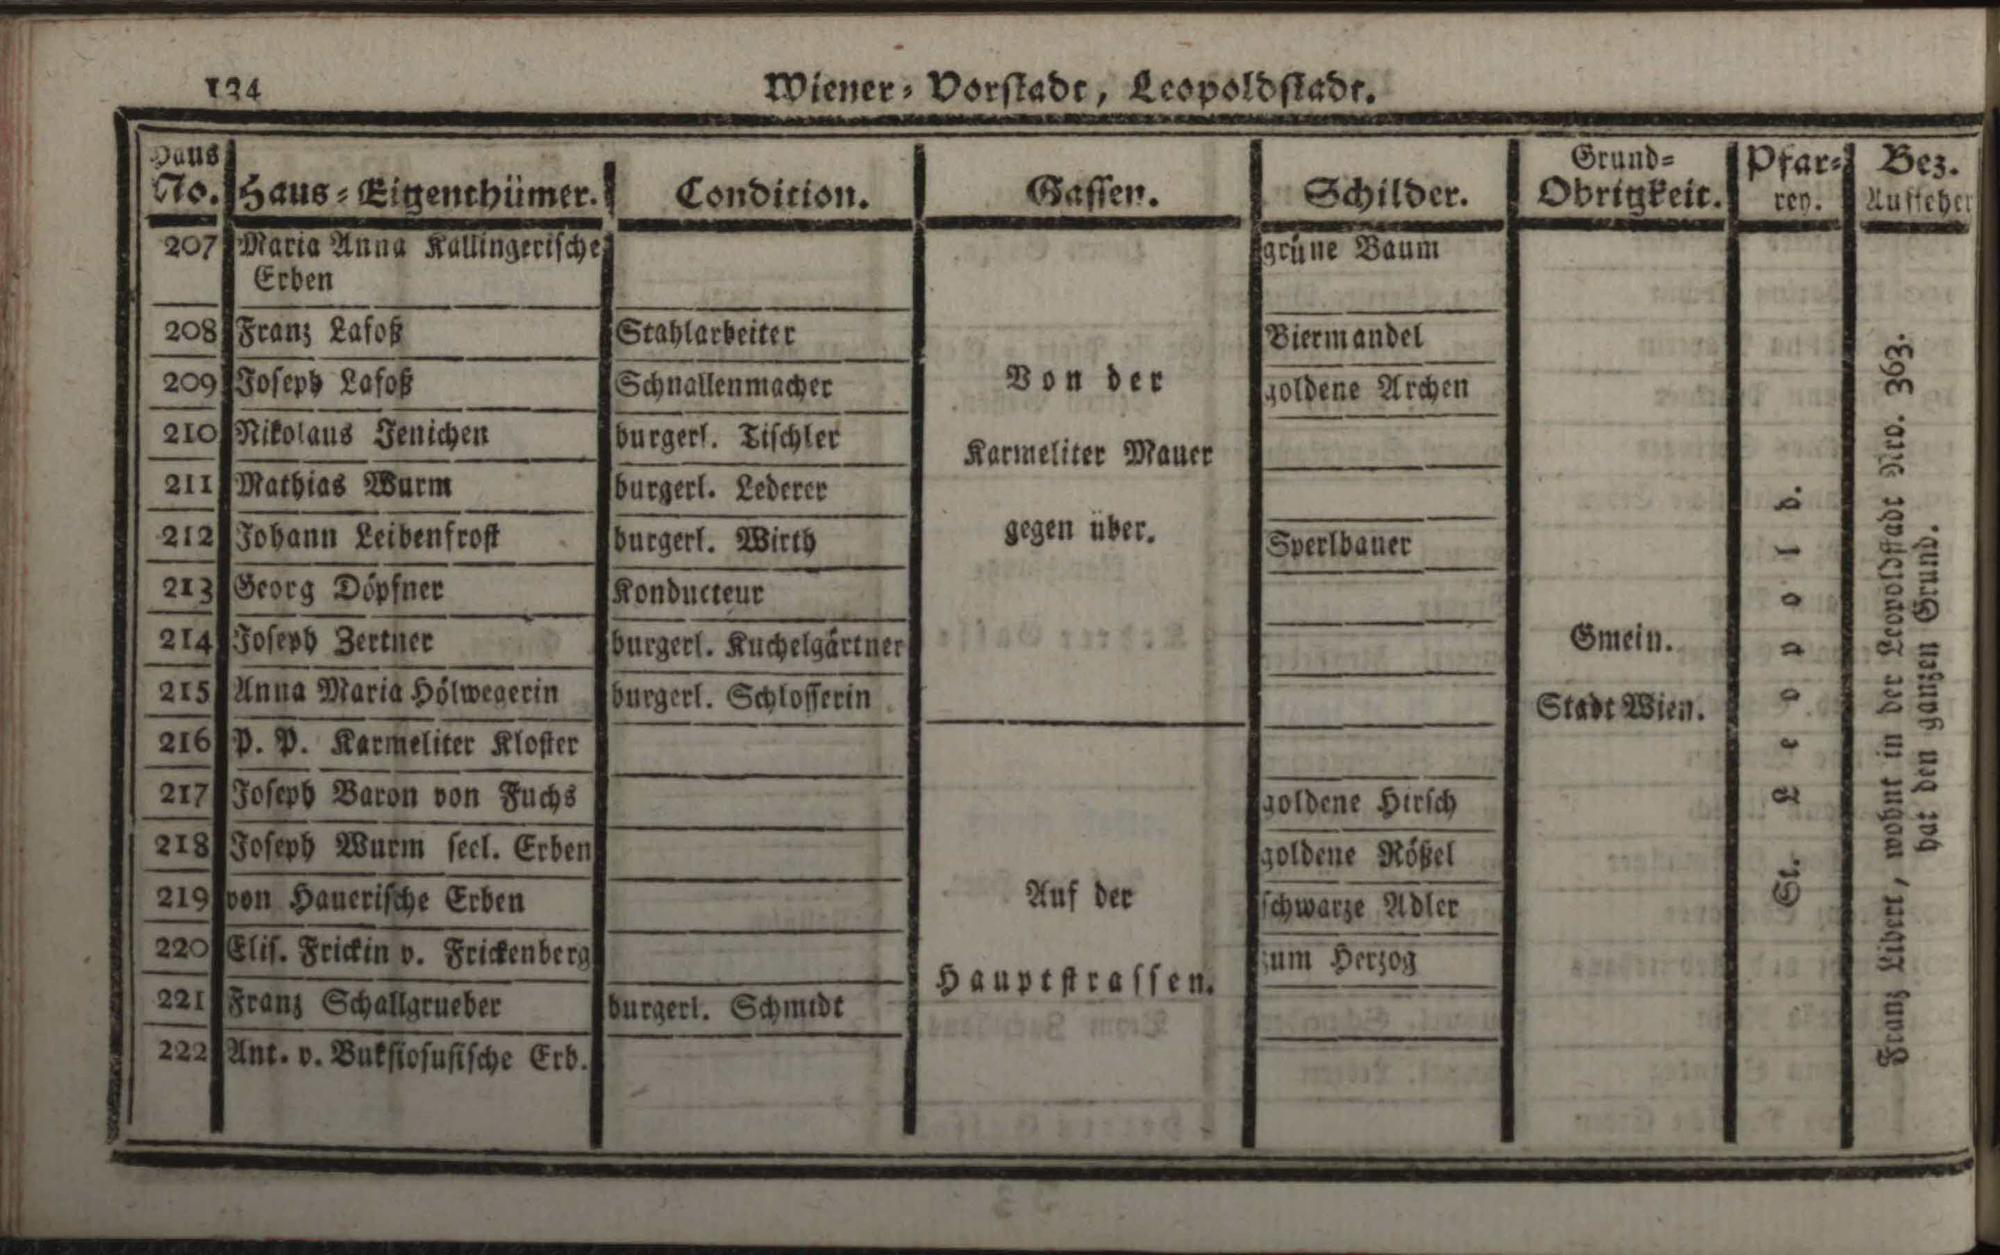 134 Wiener-Vorstadt, Leopoldstadt.
Haus No. Haus-Eigenthümer. Condition. Gassen. Schilder. Grund-Obrigkeit. Pfar-rey. Bez. Aufseher
207 Maria Anna Kallingerische grüne Baum
Erben
208 Franz Lafoß Stahlarbeiter Biermandel
209 Joseph Lafoß Schnallenmacher goldene Archen
210 Nikolaus Jenichen burgerl. Tischler
211 Mathias Wurm burgerl. Lederer
212 Johann Leibenfrost burgerl. Wirth Sperlbauer
213 Georg Döpfner Konducteur
214 Joseph Zertner burgerl. Kuchelgärtner
215 Anna Maria Hölwegerin burgerl. Schlosserin
216 P. P. Karmeliter Kloster
217 Joseph Baron von Fuchs goldene Hirsch
218 Joseph Wurm seel. Erben goldene Rößel
219 von Hauerische Erben schwarze Adler
220 Elis. Frickin v. Frickenberg zum Herzog
221 Franz Schallgrueber burgerl. Schmidt
222 Ant. v. Erb.
Von der
Karmeliter Mauer
gegen über.
Auf der
Hauptstrassen.
Gmein.
Stadt Wien.
St. Leopold.
Franz Libert, wohnt in der Leopoldstadt Nro. 363.
hat den ganzen Grund.